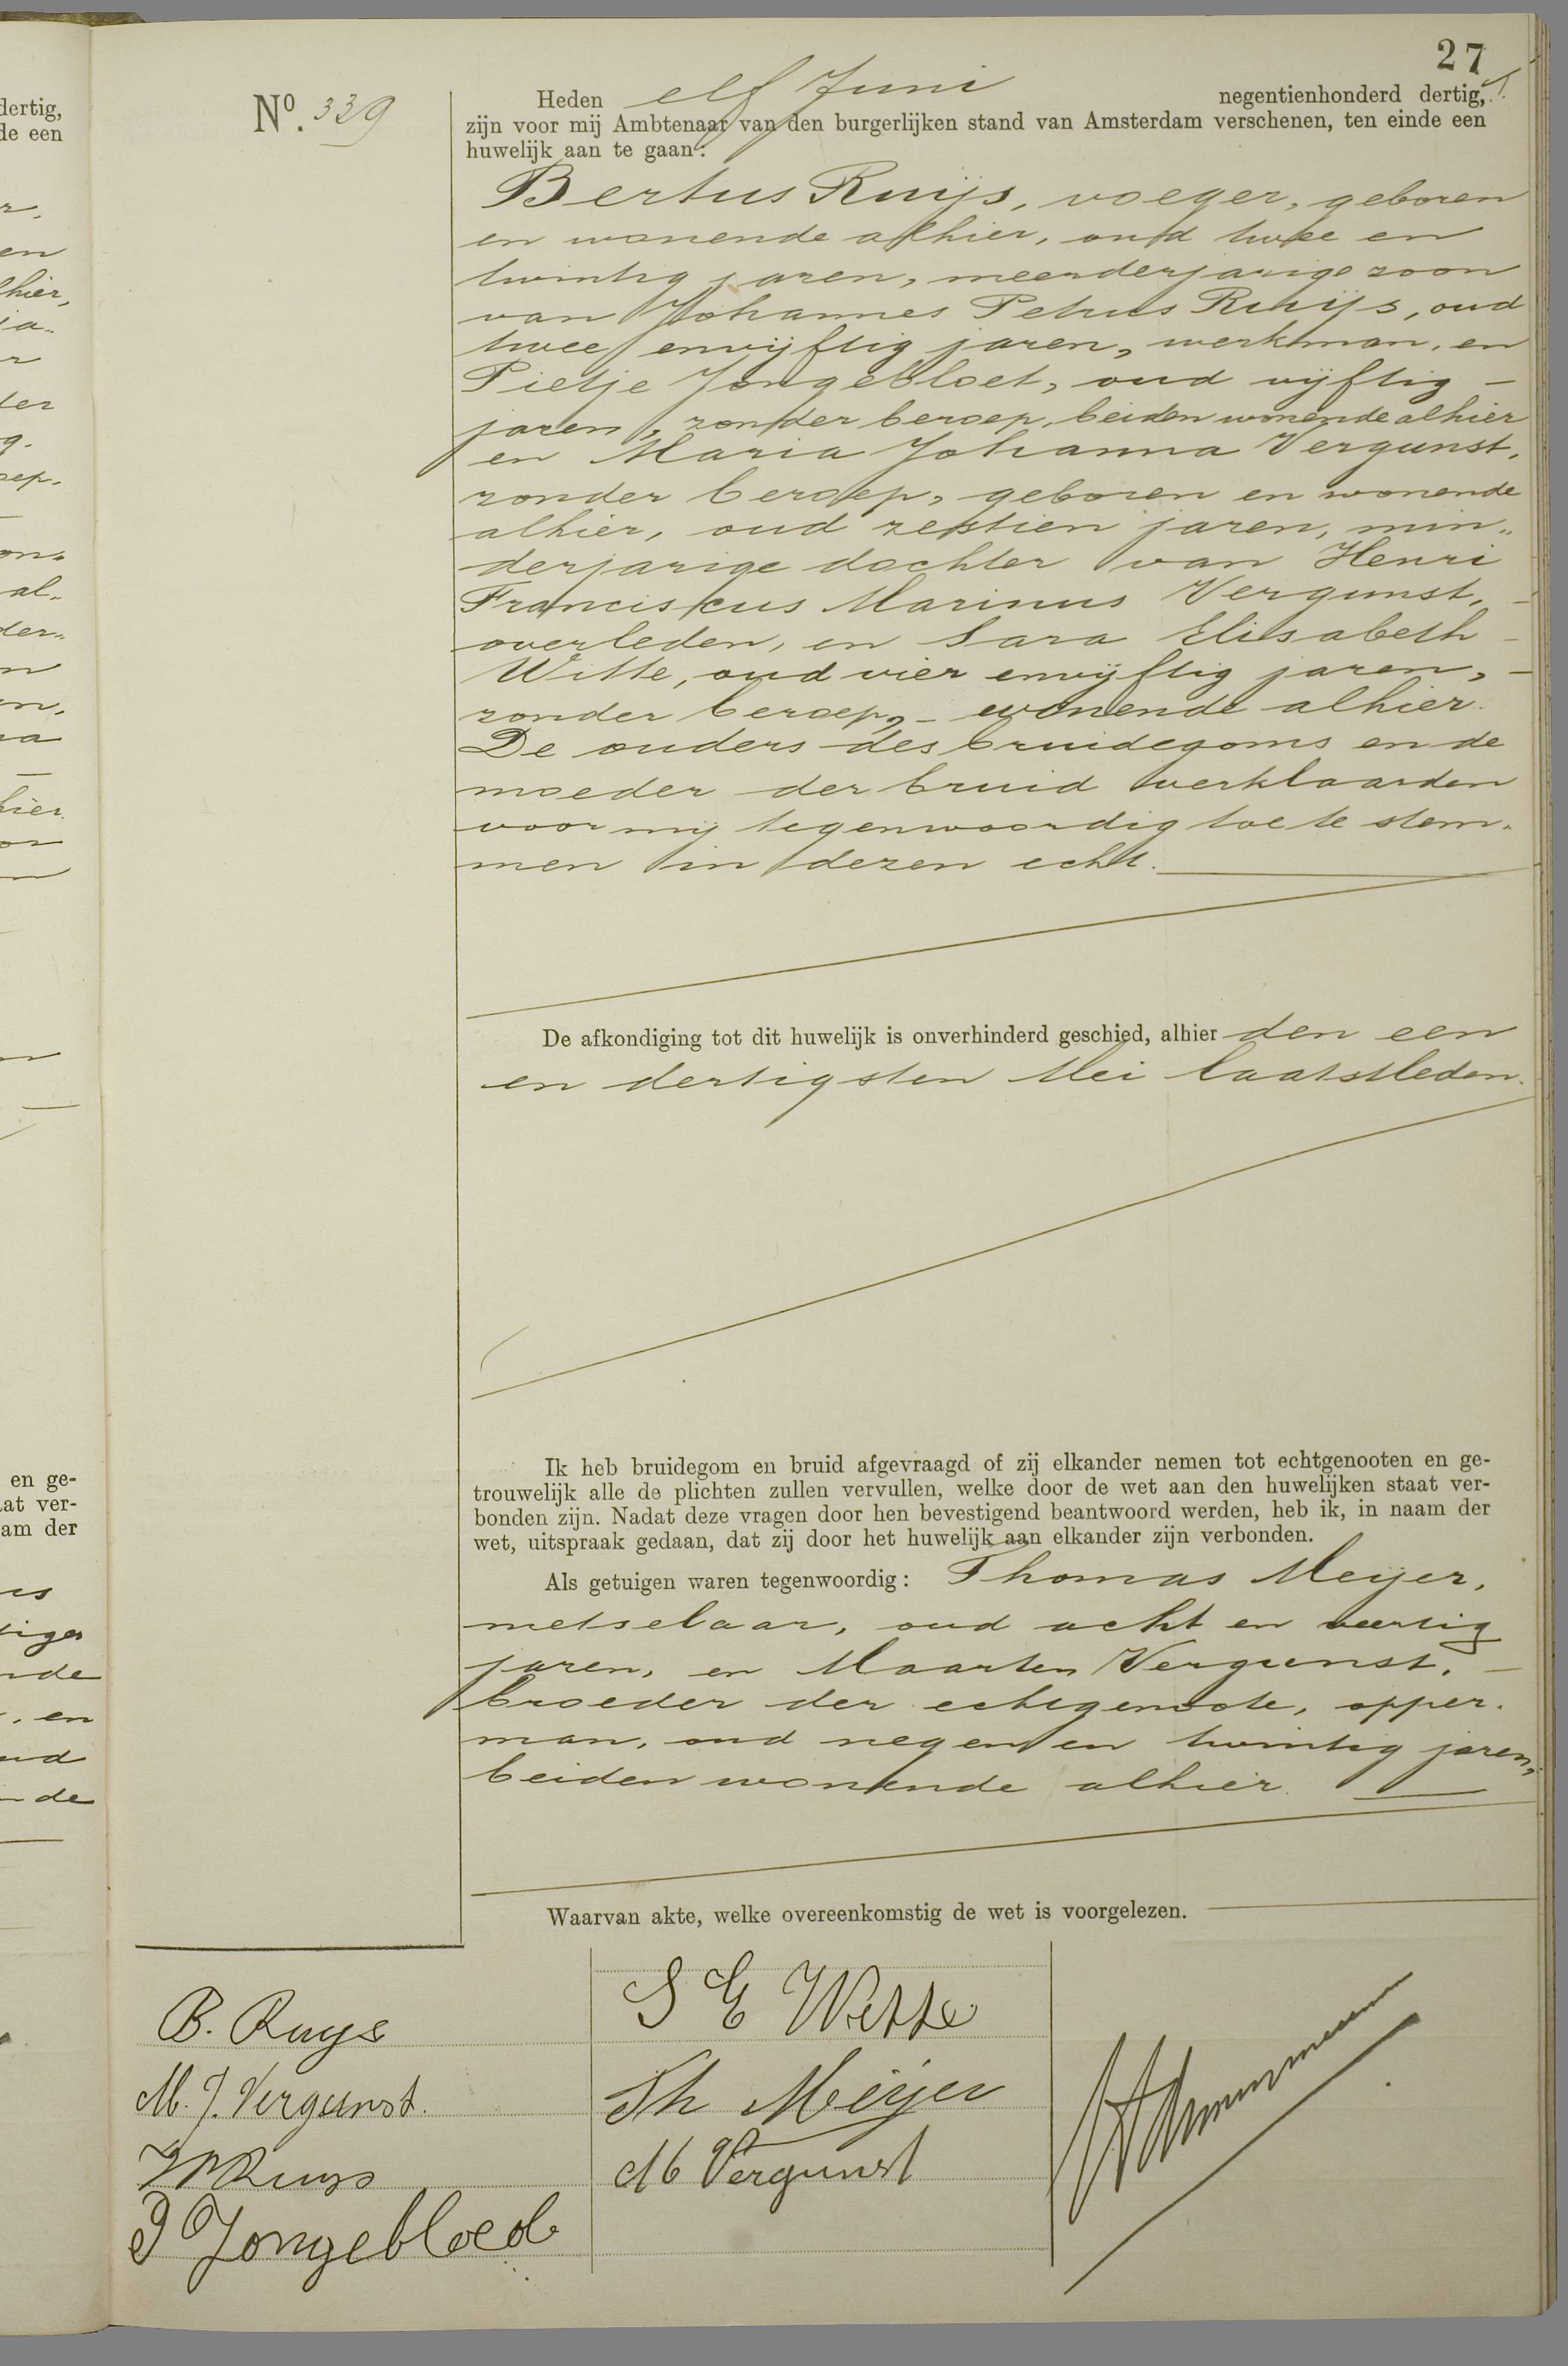 27
Nº. 339
Heden elf Juni negentienhonderd dertig,
zijn voor mij Ambtenaar van den burgerlijken stand van Amsterdam verschenen, ten einde een
huwelijk aan te gaan:
Bertus Ruijs, voeger, geboren
en wonende alhier, oud twee en
twintig jaren, meerderjarige zoon
van Johannes Petrus Ruijs, oud
twee en vijftig jaren, werkman, en
Pietje Jongebloet, oud vijftig —
jaren, zonder beroep, beiden wonende alhier
en Maria Johanna Vergunst,
zonder beroep, geboren en wonende
alhier, oud zestien jaren, min„
derjarige dochter van Henri
Franciskus Marinus Vergunst, —
overleden, en Sara Elisabeth —
Witte, oud vier en vijftig jaren, —
zonder beroep, — wonende alhier.
De ouders des bruidegoms en de
moeder der bruid verklaarden
voor mij tegenwoordig toe te stem„
men in dezen echt.
De afkondiging tot dit huwelijk is onverhinderd geschied, alhier den een
en dertigsten Mei laatstleden.
Ik heb bruidegom en bruid afgevraagd of zij elkander nemen tot echtgenooten en ge-
trouwelijk alle de plichten zullen vervullen, welke door de wet aan den huwelijken staat ver-
bonden zijn. Nadat deze vragen door hen bevestigend beantwoord werden, heb ik, in naam der
wet, uitspraak gedaan, dat zij door het huwelijk aan elkander zijn verbonden.
Als getuigen waren tegenwoordig: Thomas Meijer,
metselaar, oud acht en veertig
jaren, en Maarten Vergunst, —
broeder der echtgenoote, opper„
man, oud negen en twintig jaren,
beiden wonende alhier.
Waarvan akte, welke overeenkomstig de wet is voorgelezen.
B. Ruys
M. J. Vergunst.
J P Ruys
P Jongebloed
S E Witte
Th Meijer
M Vergunst